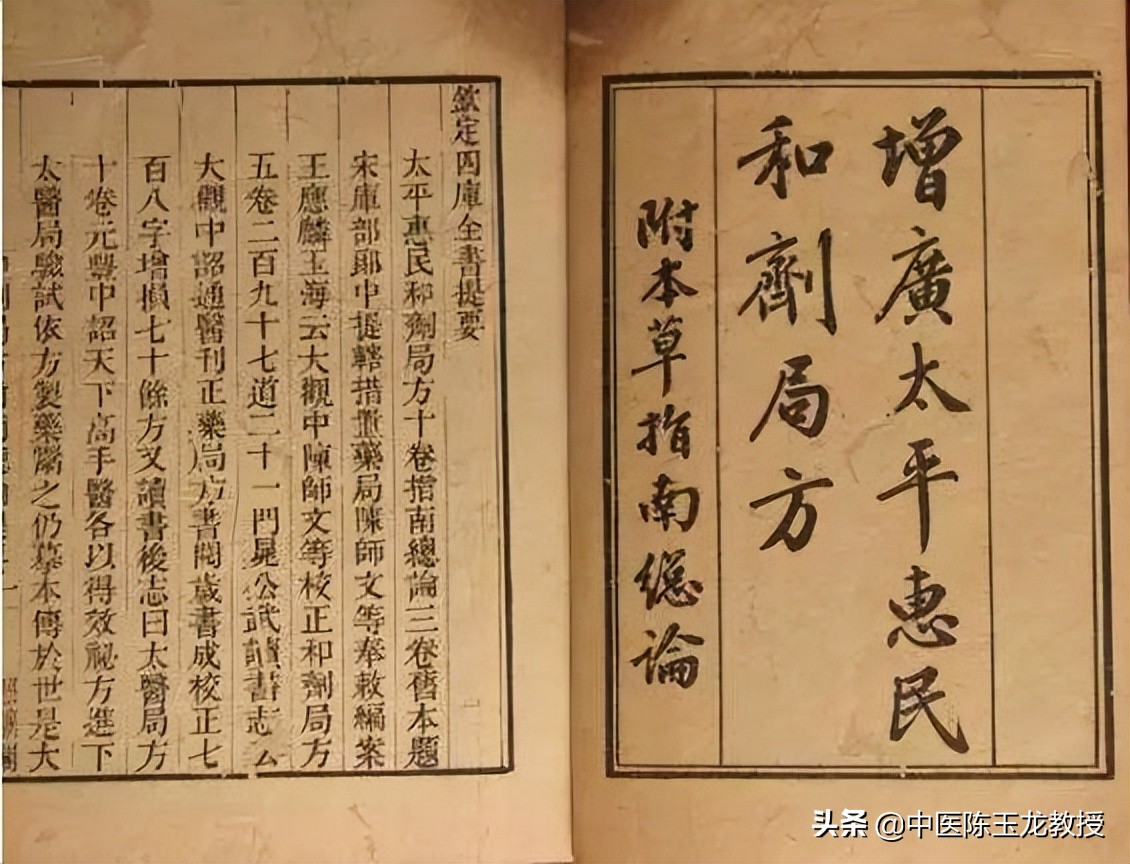 增廣太平惠民
和劑局方
附本草指南緫論
欽定四庫全書提要
太平惠民和劑局方十卷指南總論三卷舊本題
宋庫部郎中提轄措置藥局陳師文等奉敕編案
王應麟玉海云大觀中陳師文等校正和劑局方
五卷二百九十七道二十一門晁公武讀書志云
大觀中詔通醫刊正藥局方書閱歲書成校正七
百八字增損七十餘方又讀書後志曰太醫局方
十卷元豐中詔天下高手醫各以得效祕方進下
太醫局驗試依方製藥鬻之仍摹本傳於世是大
头条 @中医陈玉龙教授